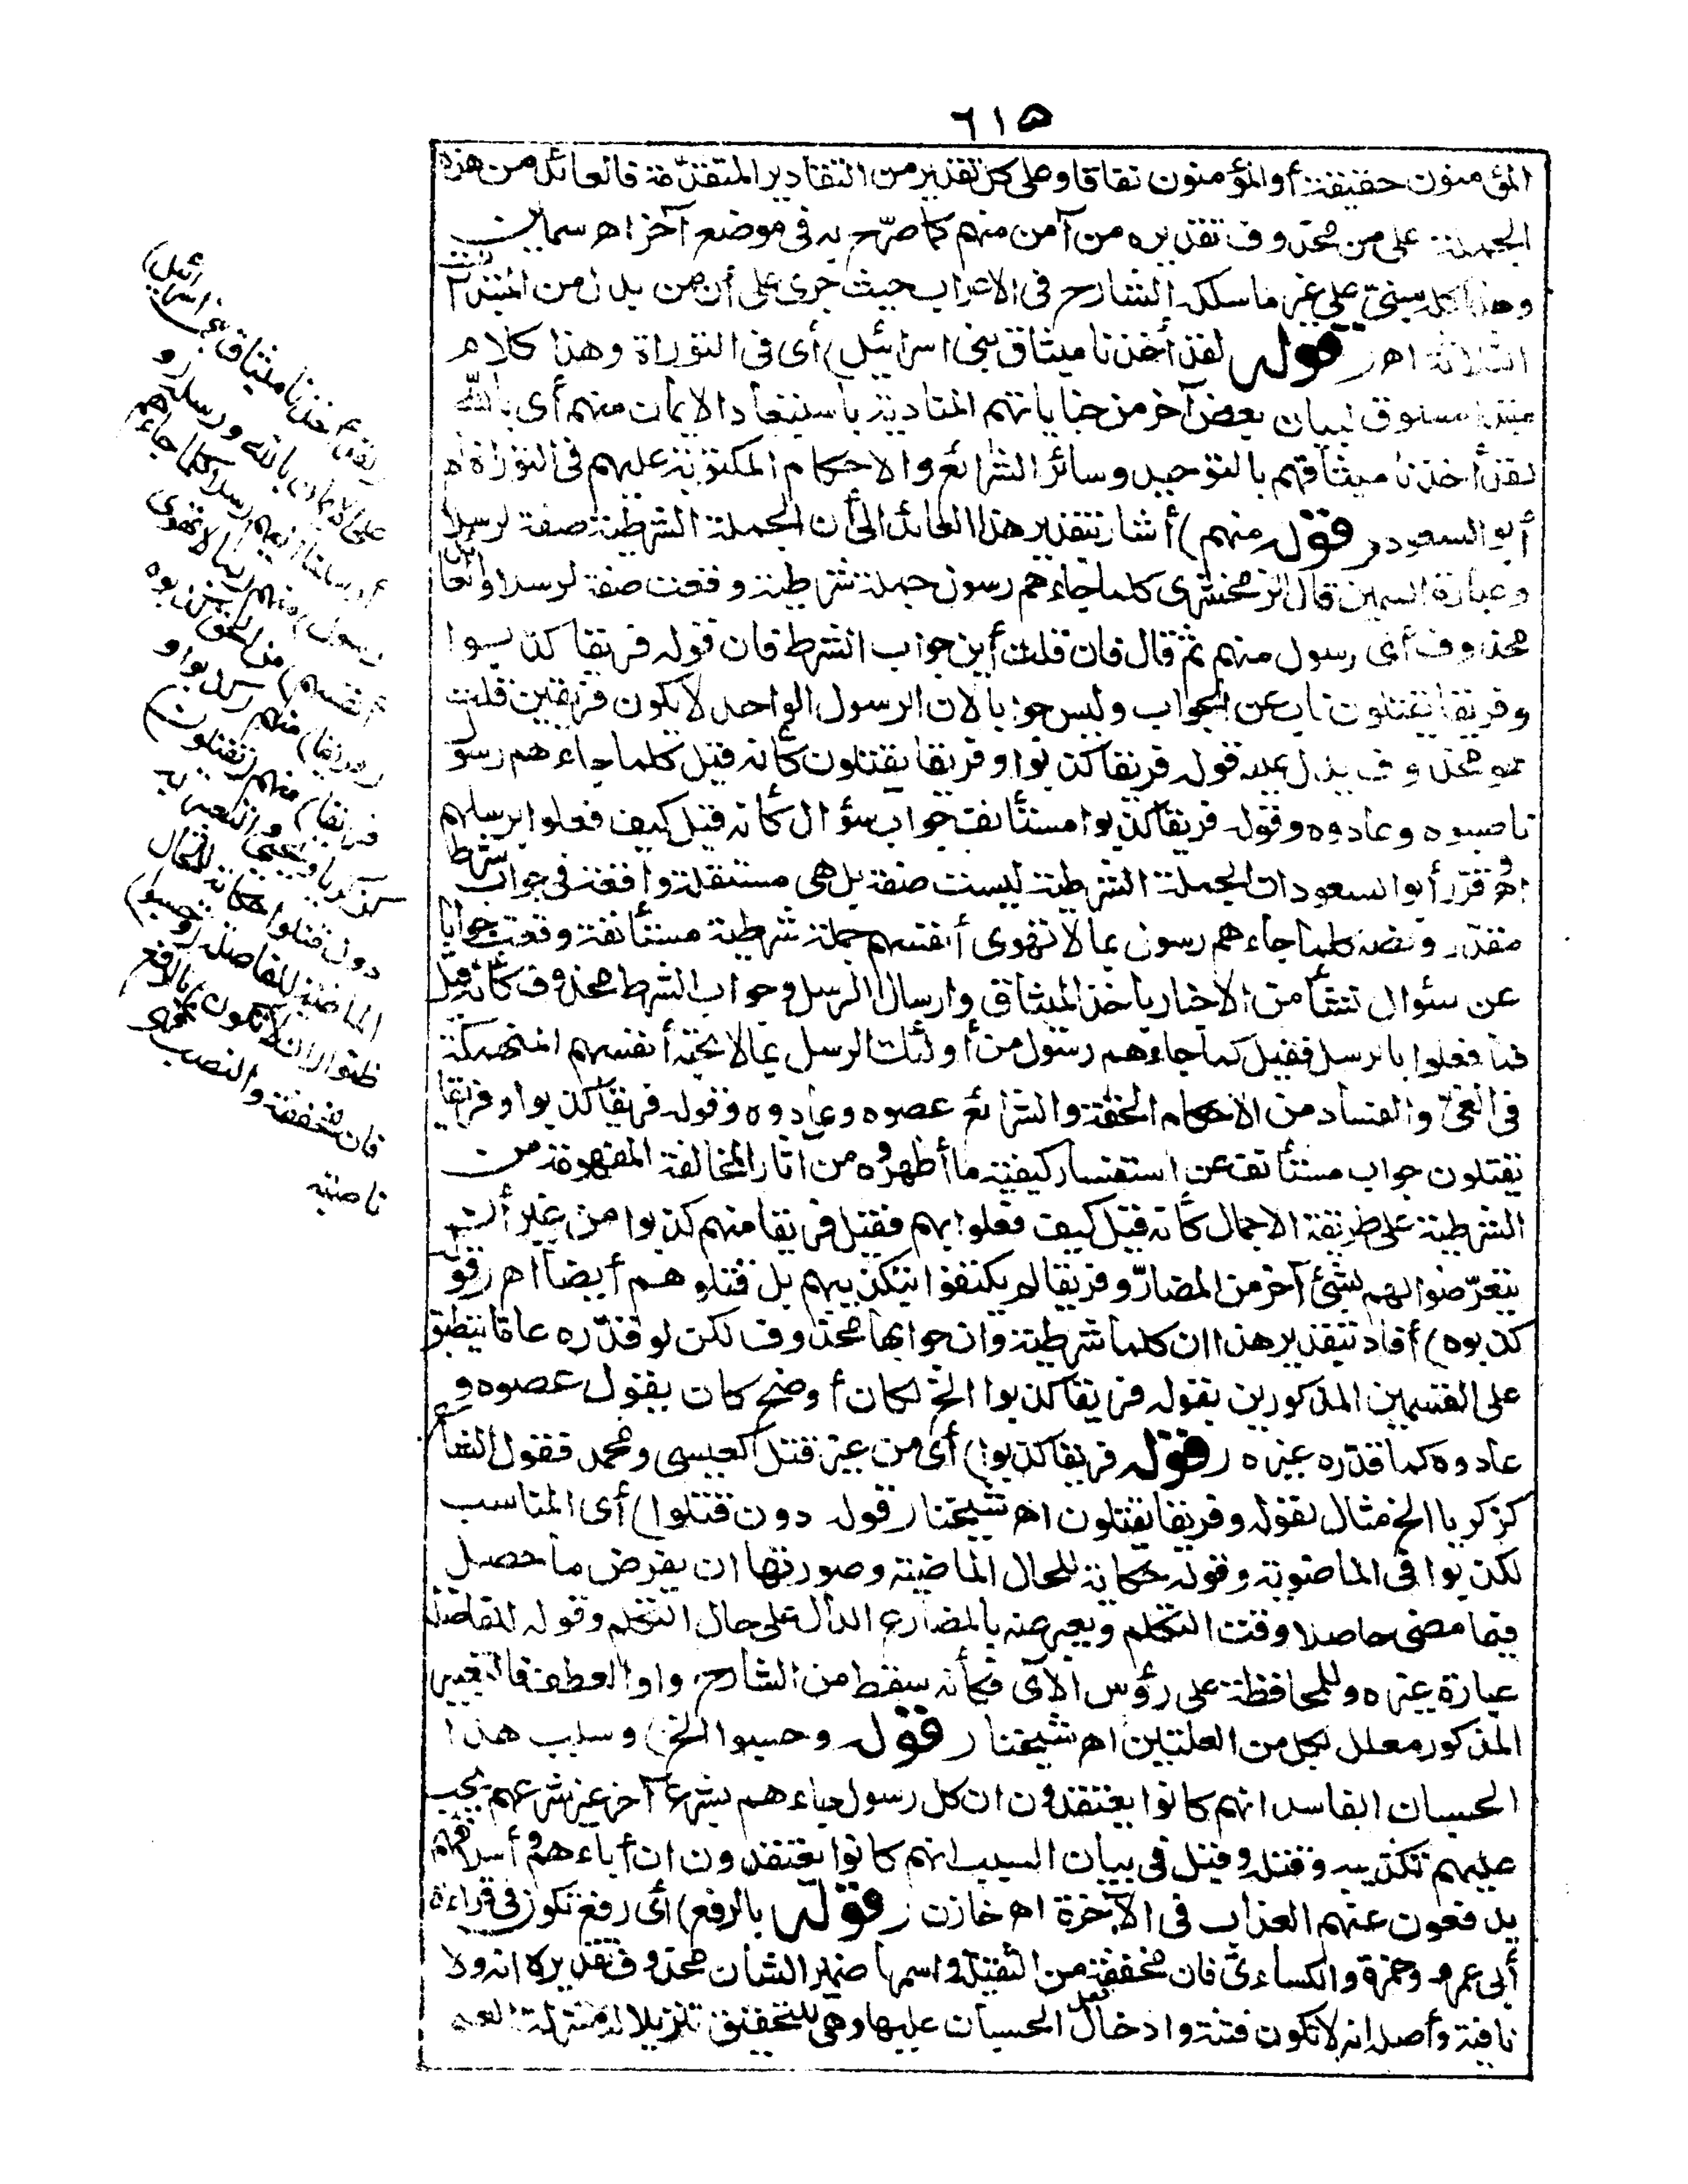 ٦١٥
المؤمنون حقيقة أو المؤمنون نفاقا وعلى كل تقدير من التقادير المتقدّمة فالعائد من هذه
الجملة على من محذوف تقديره من آمن منهم كما صرّح به في موضع آخر اهـ سمين
وهذا كله مبنيّ على غير ما سلكه الشارح في الاعراب حيث جرى على أن من بدل من المبتدآت
الثلاثة اهـ (قوله لقد أخذنا ميثاق بني اسرائيل) أي في التوراة وهذا كلام
مبتدأ مسوق لبيان بعض آخر من جناياتهم المنادية باستبعاد الايمان منهم أي بالله
لقد أخذنا ميثاقهم بالتوحيد وسائر الشرائع والاحكام المكتوبة عليهم في التوراة اه
أبو السعود (قوله منهم) أشار بتقدير هذا العائد الى أن الجملة الشرطية صفة لرسلا
وعبارة السمين قال الزمخشري كلما جاءهم رسول جملة شرطية وقعت صفة لرسلا والعائد
محذوف أي رسول منهم ثم قال فان قلت أين جواب الشرط فان قوله فريقا كذبوا
وفريقا يقتلون ناب عن الجواب وليس جوابا لان الرسول الواحد لا يكون فريقين قلت
هو محذوف يدل عليه قوله فريقا كذبوا وفريقا يقتلون كأنه قيل كلما جاءهم رسول
ناصبوه وعادوه وقوله فريقا كذبوا مستأنف جواب سؤال كأنه قيل كيف فعلوا برسلهم
اهـ وقرّر أبو السعود ان الجملة الشرطية ليست صفة بل هي مستقلة واقعة في جواب شرط
مقدّر ونصه كلما جاءهم رسول بما لا تهوى أنفسهم جملة شرطية مستأنفة وقعت جوابا
عن سؤال نشأ من الاخبار بأخذ الميثاق وارسال الرسل وجواب الشرط محذوف كأنه قيل
فماذا فعلوا بالرسل فقيل كلما جاءهم رسول من أولئك الرسل بما لا تحبه أنفسهم المنهمكة
في الغيّ والفساد من الاحكام الحقة والشرائع عصوه وعادوه وقوله فريقا كذبوا وفريقا
يقتلون جواب مستأنف عن استفسار كيفية ما أظهروه من آثار المخالفة المفهومة من
الشرطية على طريقة الاجمال كأنه قيل كيف فعلوا بهم فقيل فريقا منهم كذبوا من غير أن
يتعرّضوا لهم بشئ آخر من المضارّ وفريقا لم يكتفوا بتكذيبهم بل قتلوهم أيضا اهـ (قوله
كذبوه) أفاد بتقدير هذا ان كلما شرطية وان جوابها محذوف لكن لو قدّره عاما ينطبق
على القسمين المذكورين بقوله فريقا كذبوا الخ لكان أوضح كان يقول عصوه و
عادوه كما قدّره غيره (قوله فريقا كذبوا) أي من غير قتل كعيسى ومحمد فقول الشارح
كزكريا الخ مثال لقوله وفريقا يقتلون اهـ شيخنا (قوله دون قتلوا) أي المناسب
لكذبوا في الماضوية وقوله حكاية للحال الماضية وصورتها ان يفرض ما حصل
فيما مضى حاصلا وقت التكلم ويعبر عنه بالمضارع الدال على حال التكلم وقوله للفاصلة
عبارة غيره وللمحافظة على رؤس الآي فكأنه سقط من الشارح واو العطف فالتعبير
المذكور معلل بكل من العلتين اهـ شيخنا (قوله وحسبوا الخ) وسبب هذا
الحسبان الفاسد انهم كانوا يعتقدون ان كل رسول جاءهم بشرع آخر غير شرعهم يجب
عليهم تكذيبه وقتله وقيل في بيان السبب انهم كانوا يعتقدون ان أباءهم وأسلافهم
يدفعون عنهم العذاب في الآخرة اهـ خازن (قوله بالرفع) أي رفع تكون في قراءة
أبي عمرو وحمزة والكساءيّ فان مخففة من الثقيلة واسمها ضمير الشان محذوف تقديره انه ولا
نافية وأصله انه لا تكون فتنة وادخال فعل الحسبان عليها وهي للتحقيق تنزيلا له منزلة العلم
(لقد أخذنا ميثاق بني اسرائيل)
على الايمان بالله ورسله (و
أرسلنا اليهم رسلا كلما جاءهم
رسول) منهم (بما لا تهوى
أنفسهم) من الحق كذبوه
(فريقا) منهم (كذبوا و
فريقا) منهم (يقتلون)
كزكريا ويحيى والتعبير به
دون قتلوا حكاية للحال
الماضية للفاصلة (وحسبوا)
ظنوا (ان لا تكون) بالرفع
فان مخففة والنصب فهي
ناصبة